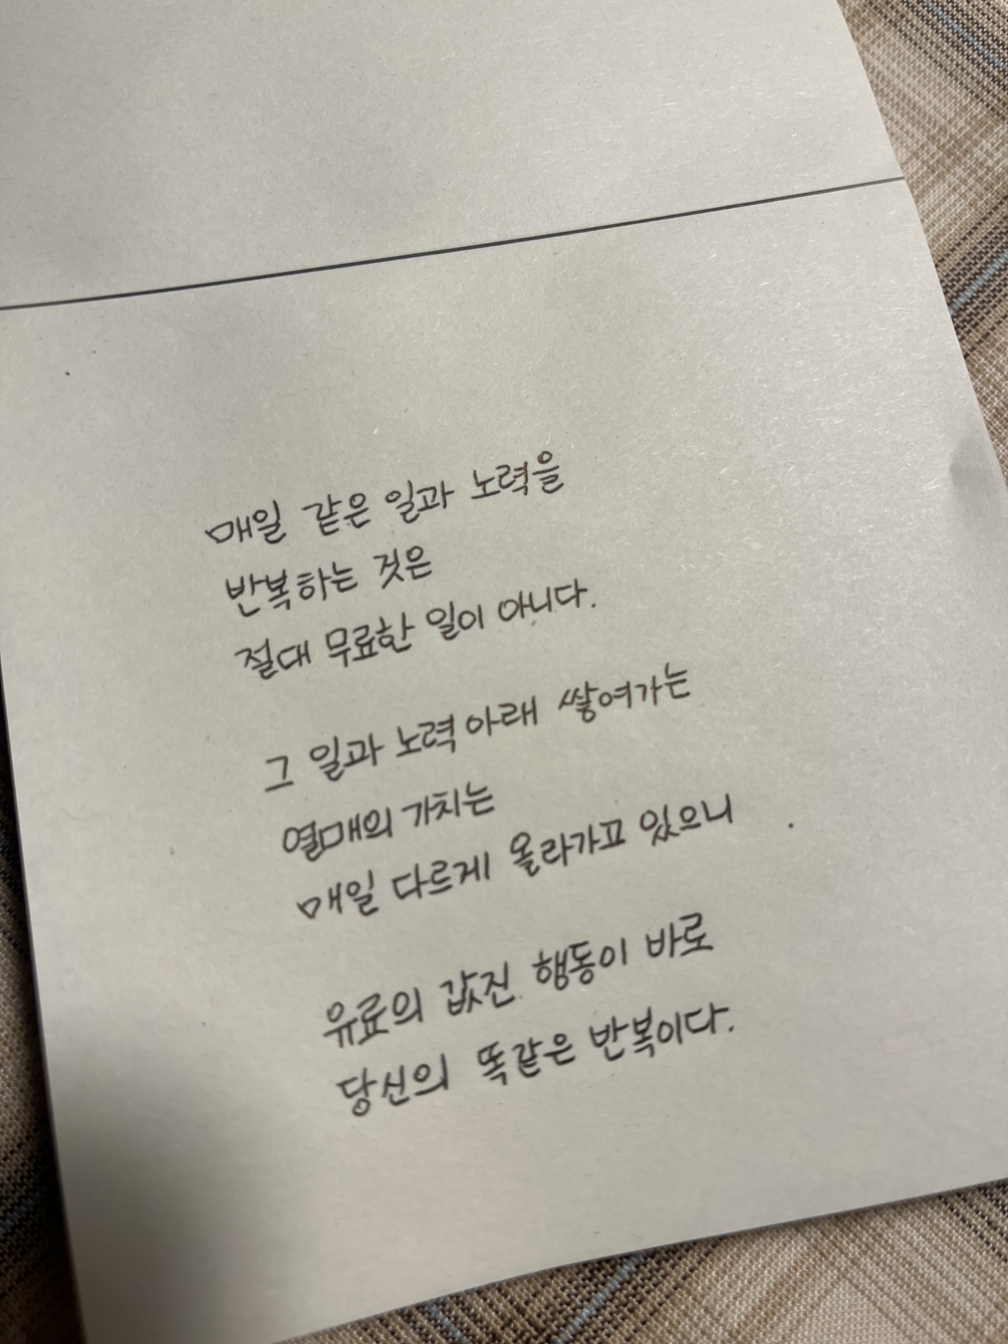 매일 같은 일과 노력을
반복하는 것은
절대 무료한 일이 아니다.
그 일과 노력 아래 쌓여가는
열매의 가치는
매일 다르게 올라가고 있으니
유료의 값진 행동이 바로
당신의 똑같은 반복이다.